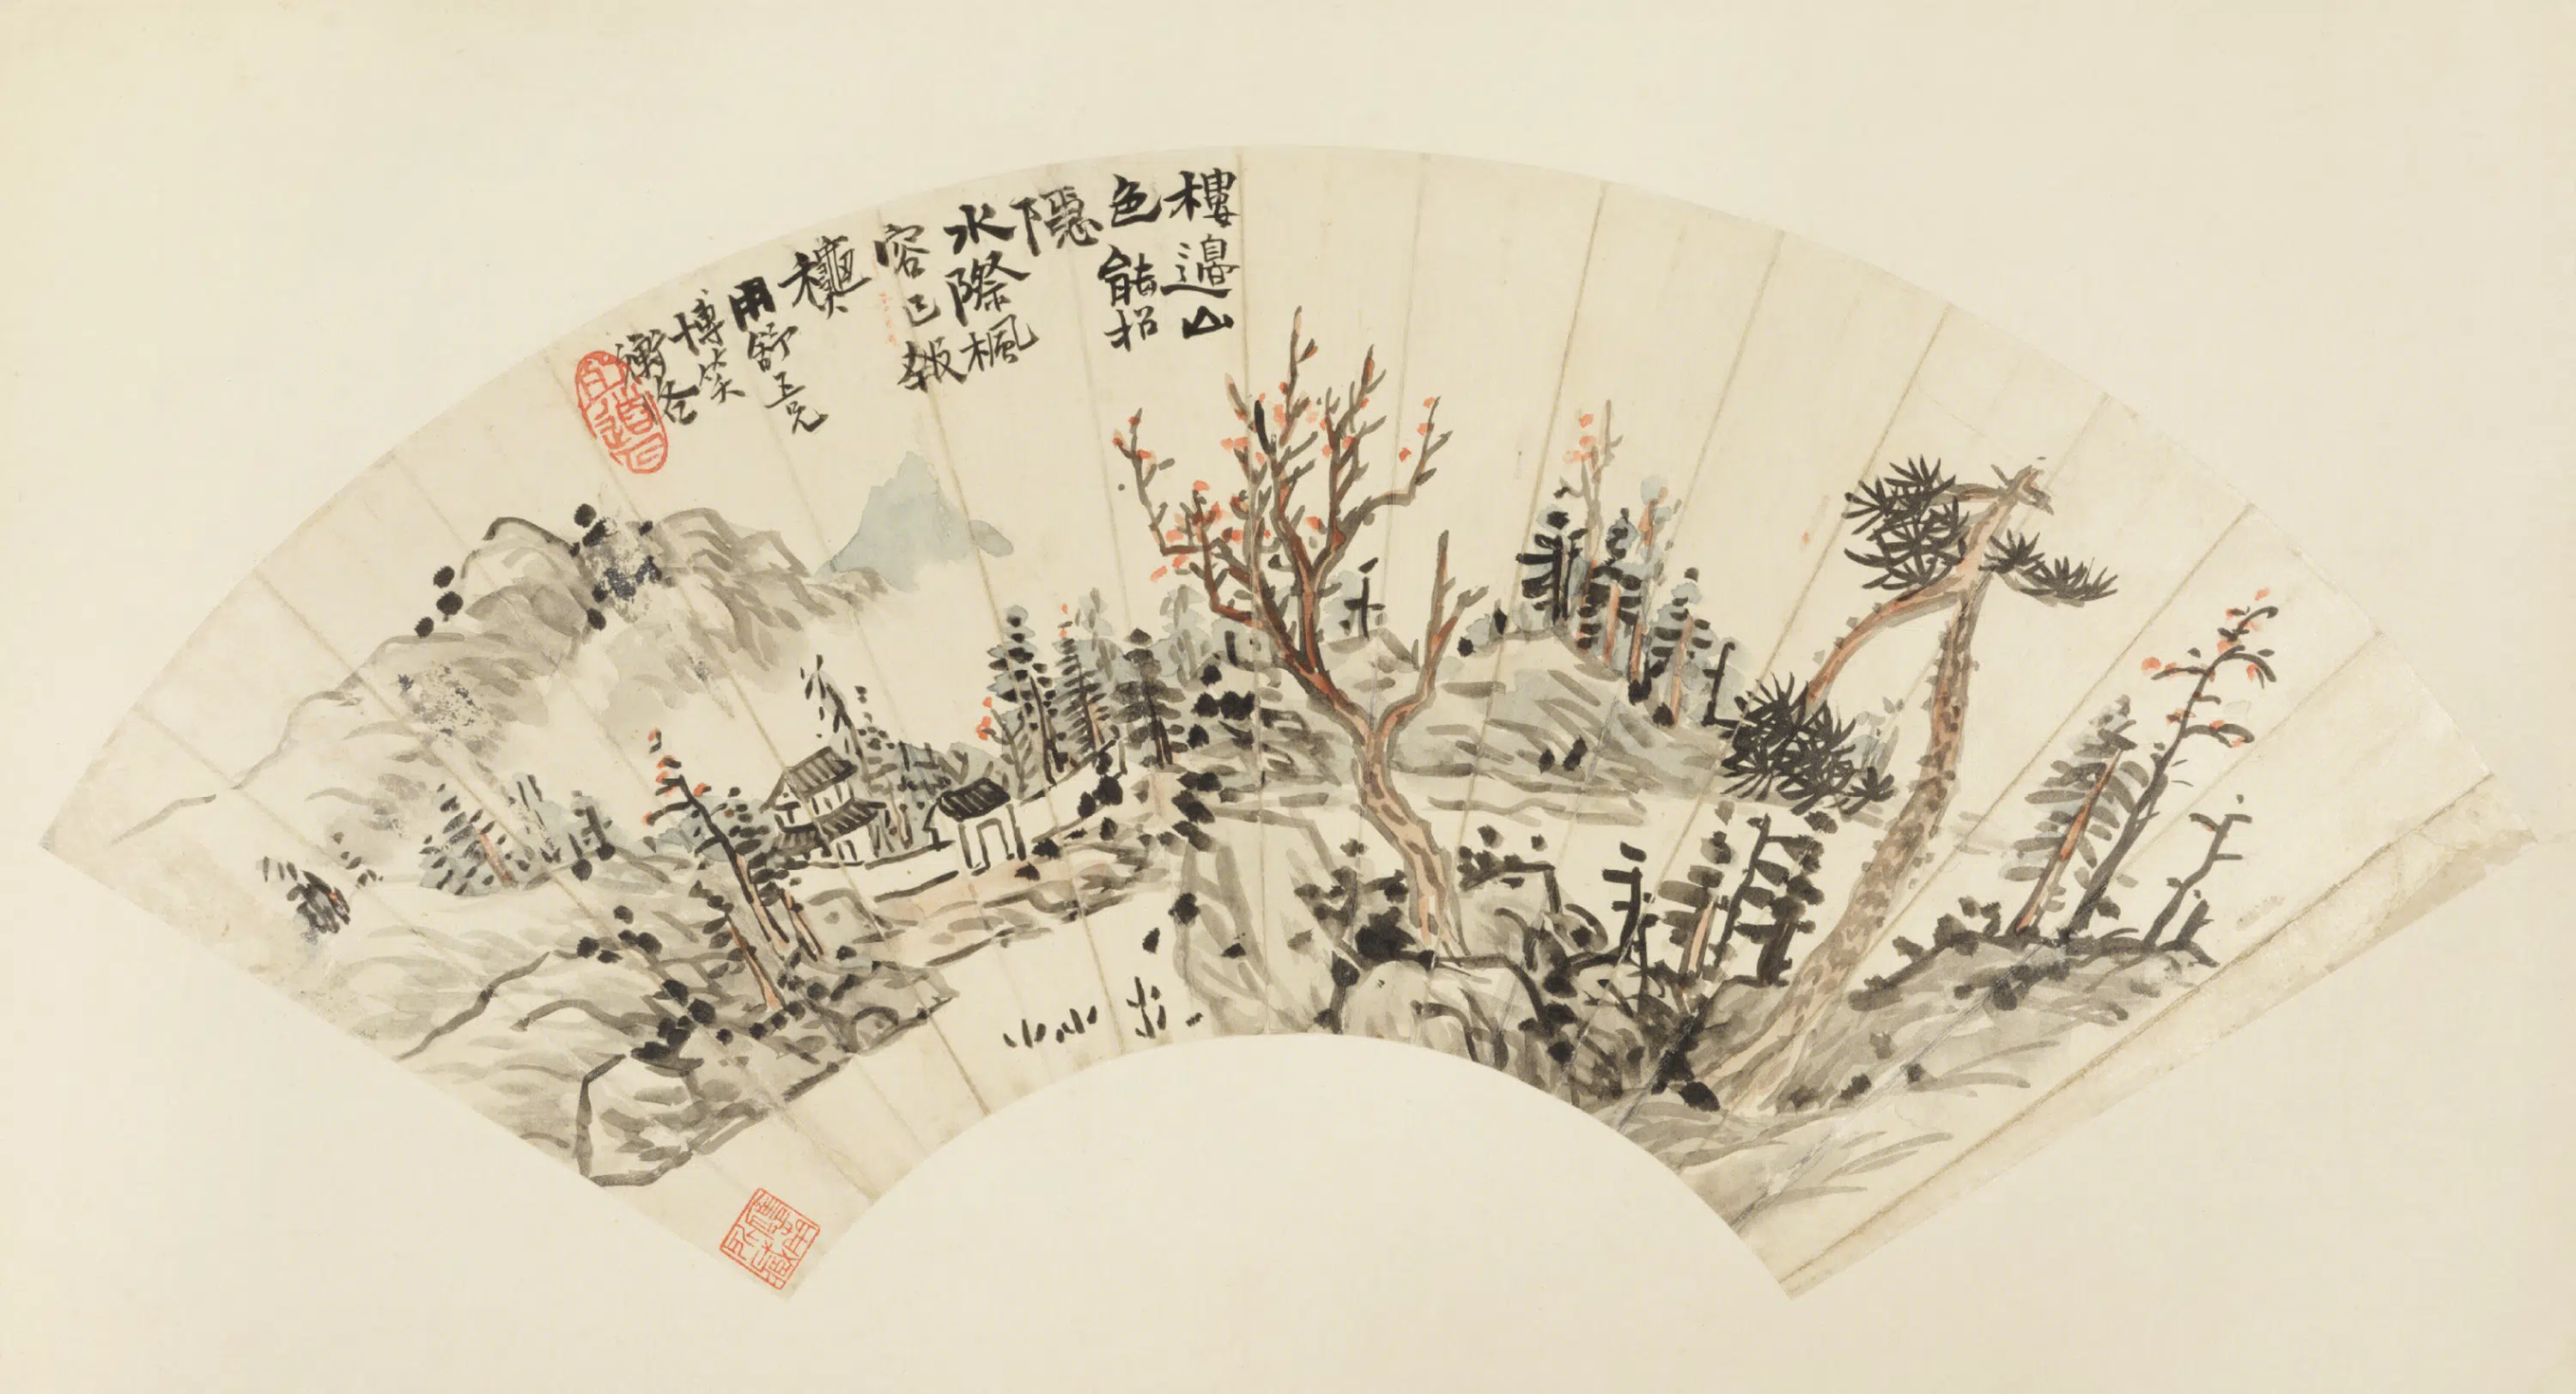 樓邊山
色能招
隱
水際楓
容已報
龝
用舒五兄
博笑
衡各